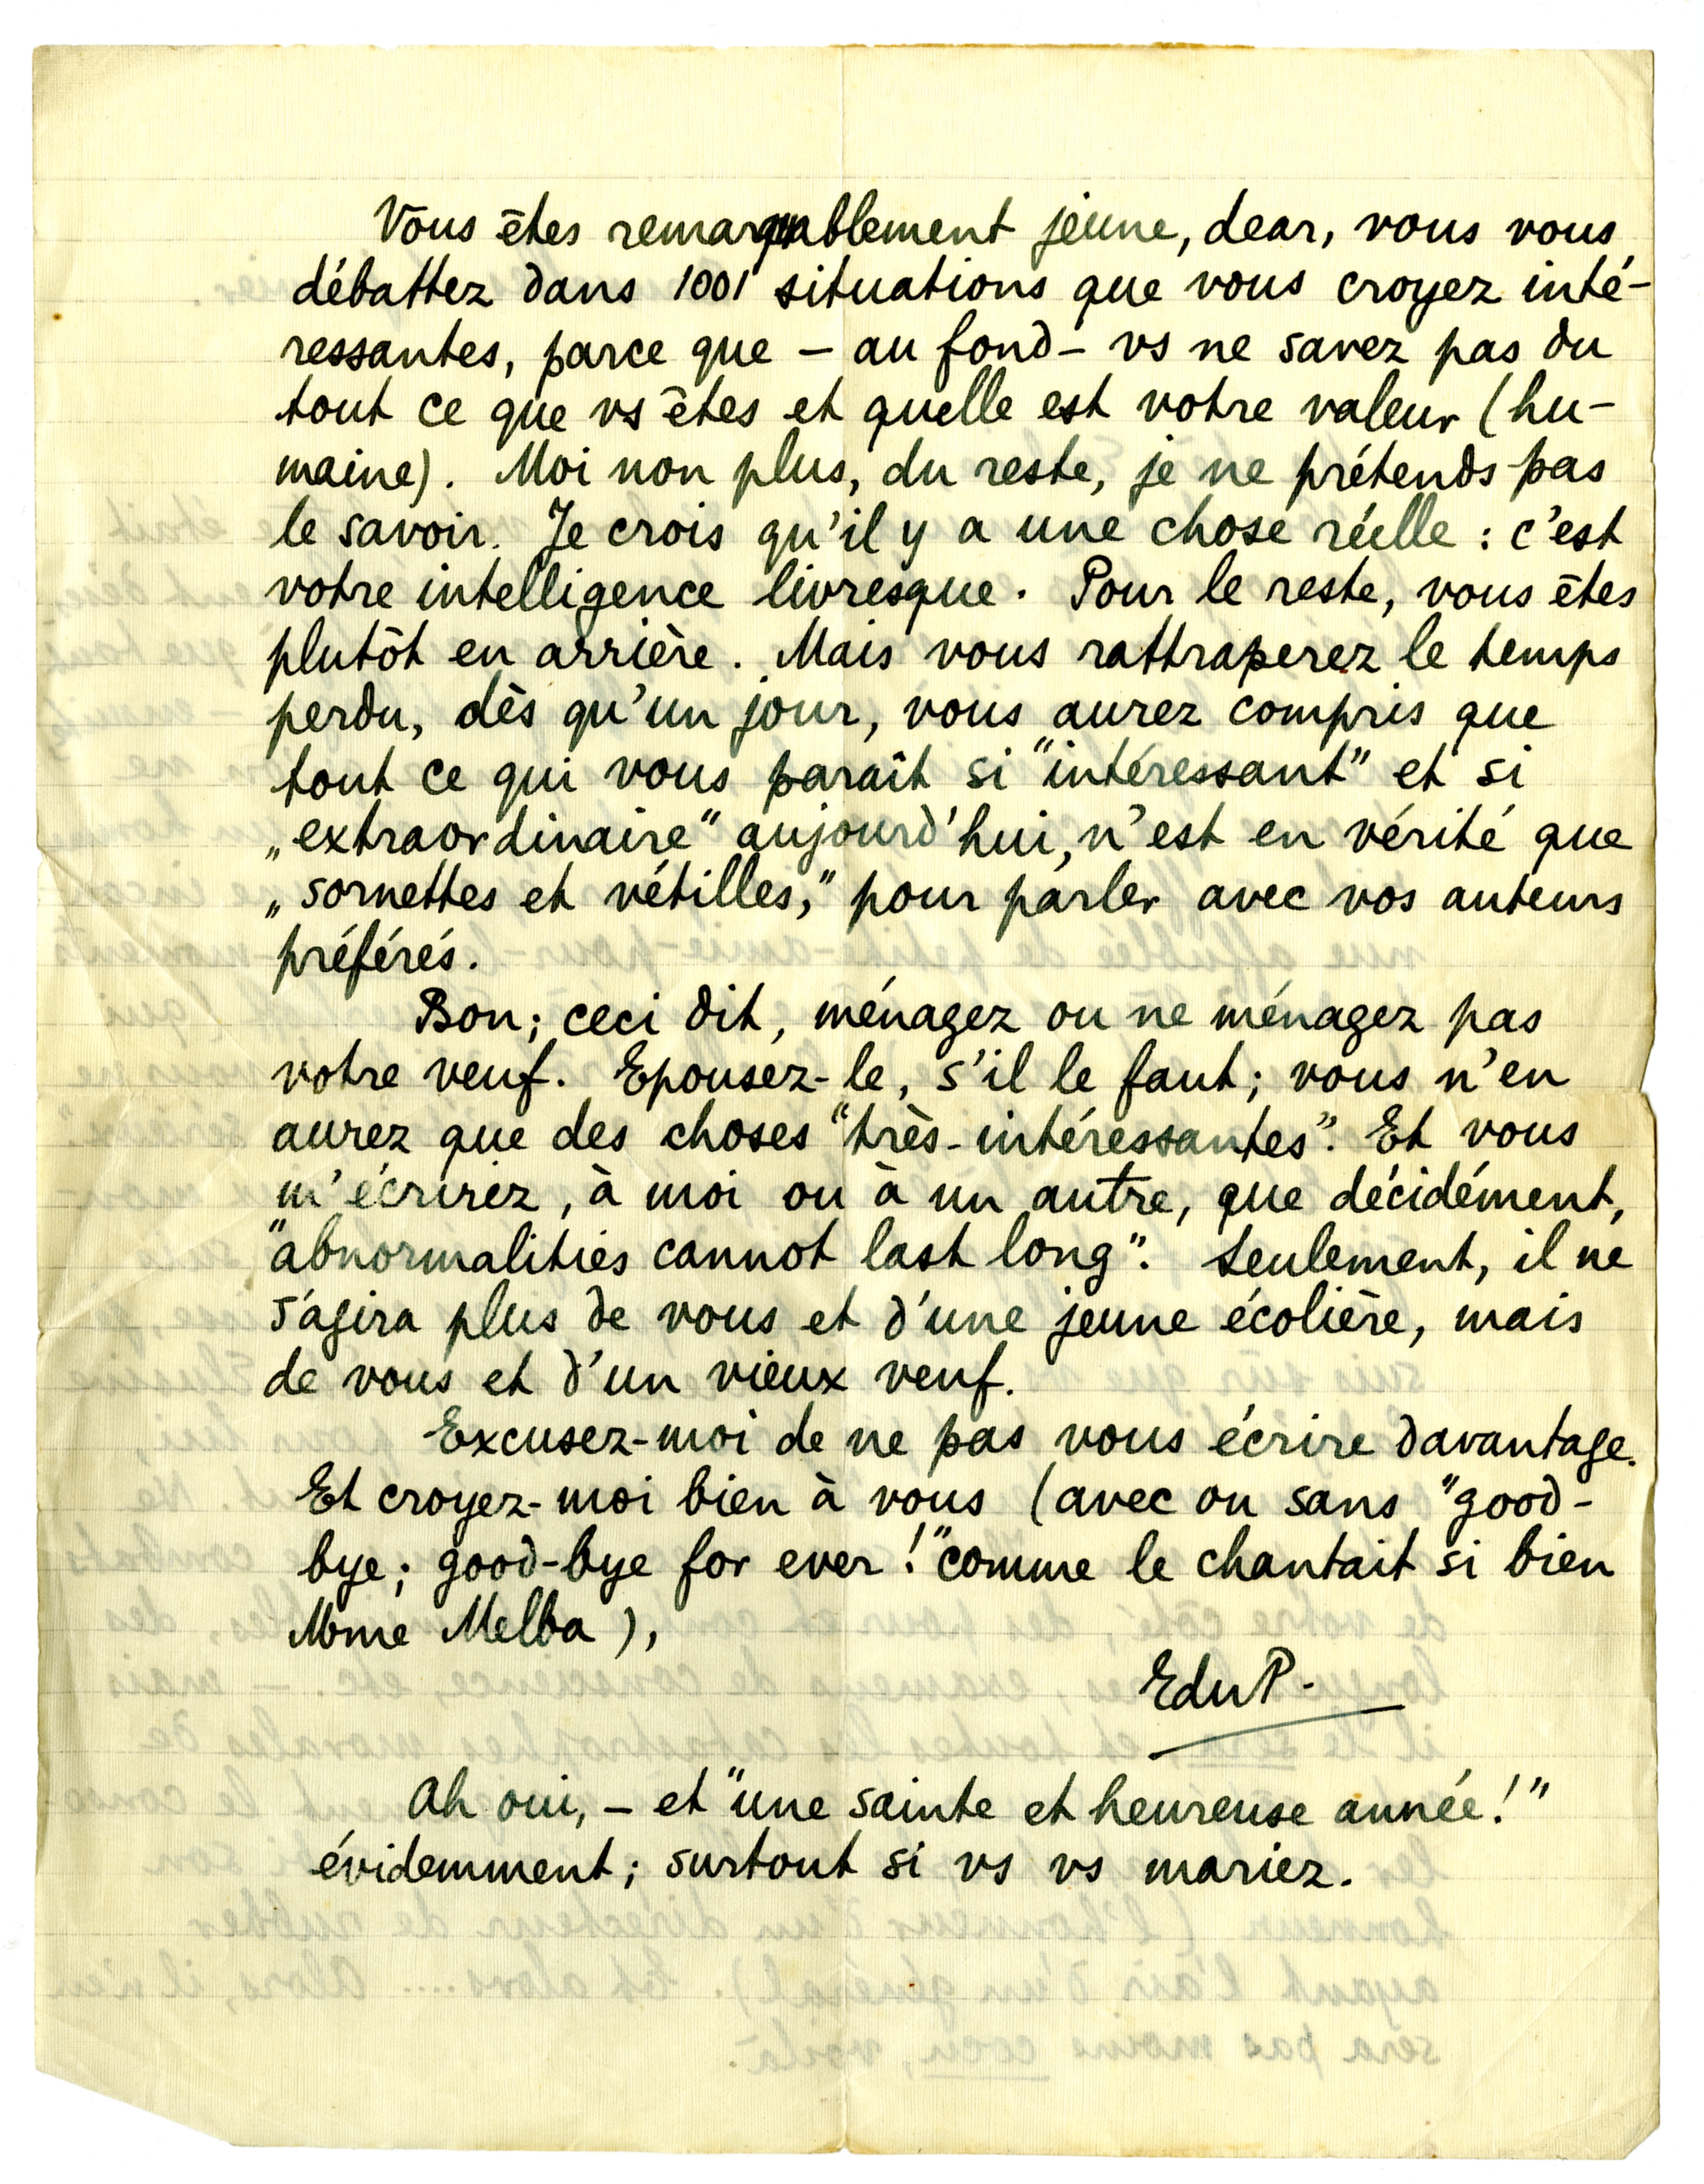 Vous êtes remarquablement jeune, dear, vous vous
débattez dans 1001 situations que vous croyez inté-
ressantes, parce que – au fond – vs ne savez pas du
tout ce que vs êtes et quelle est votre valeur (hu-
maine). Moi non plus, du reste, je ne prétends pas
le savoir. Je crois qu'il y a une chose réelle : c'est
votre intelligence livresque. Pour le reste, vous êtes
plutôt en arrière. Mais vous rattraperez le temps
perdu, dès qu'un jour, vous aurez compris que
tout ce qui vous paraît si "intéressant" et si
„extraordinaire" aujourd'hui, n'est en vérité que
„sornettes et vétilles," pour parler avec vos auteurs
préférés.
Bon; ceci dit, ménagez ou ne ménagez pas
votre veuf. Epousez-le, s'il le faut; vous n'en
aurez que des choses "très-intéressantes". Et vous
m'écrirez, à moi ou à un autre, que décidément,
"abnormalities cannot last long". Seulement, il ne
s'agira plus de vous et d'une jeune écolière, mais
de vous et d'un vieux veuf.
Excusez-moi de ne pas vous écrire davantage.
Et croyez-moi bien à vous (avec ou sans "good-
bye; good-bye for ever!" comme le chantait si bien
Mme Melba),
EduP.
Ah oui, – et "une sainte et heureuse année!"
évidemment; surtout si vs vs mariez.